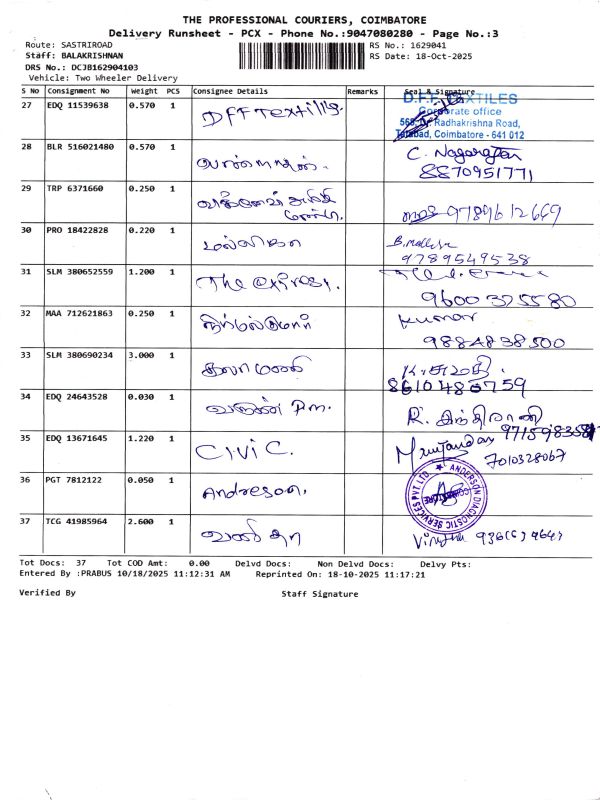 THE PROFESSIONAL COURIERS, COIMBATORE
Delivery Runsheet - PCX - Phone No.:9047080280 - Page No.:3
Route: SASTRIROAD
RS No.: 1629041
Staff: BALAKRISHNAN
RS Date: 18-Oct-2025
DRS No.: DCJB162904103
Vehicle: Two Wheeler Delivery
S No Consignment No Weight PCS Consignee Details Remarks Seal & Signature
27 EDQ 11539638 0.570 1 DFF Textills.
D.F.F. TEXTILES
Corporate office
Radhakrishna Road,
Tatabad, Coimbatore - 641 012
28 BLR 516021480 0.570 1 C. Nagarajan
8870951771
29 TRP 6371660 0.250 1
30 PRO 18422828 0.220 1 மல்லிகா
9789549538
31 SLM 380652559 1.200 1 The express.
9600325580
32 MAA 712621863 0.250 1 நிர்மல்குமார் Kumar
9884838500
33 SLM 380690234 3.000 1 கலாமணி
34 EDQ 24643528 0.030 1 வருண் P.m.
35 EDQ 13671645 1.220 1 CIVIC.
7010328067
36 PGT 7812122 0.050 1 Andreson.
ANDERSON DIAGNOSTIC SERVICES PVT. LTD.
37 TCG 41985964 2.600 1
Tot Docs: 37 Tot COD Amt: 0.00 Delvd Docs: Non Delvd Docs: Delvy Pts:
Entered By :PRABUS 10/18/2025 11:12:31 AM Reprinted On: 18-10-2025 11:17:21
Verified By Staff Signature